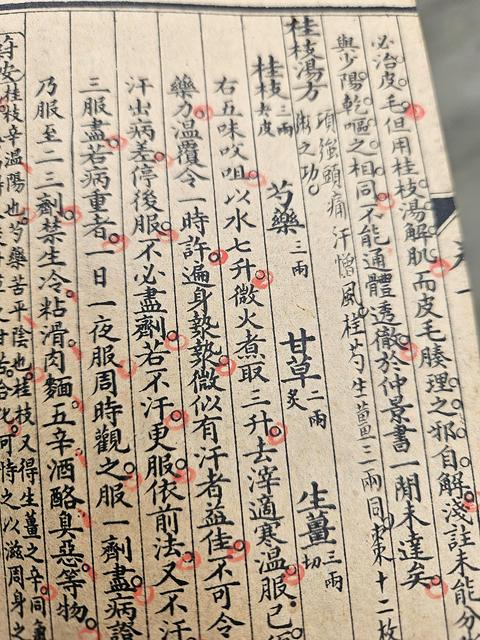 必治皮毛。但用桂枝湯解肌。而皮毛腠理之邪自解。淺註未能分
與少陽乾嘔之相同。不能通體透徹於仲景書一閒未達矣
桂枝湯方 項強頭痛汗憎風桂芍生薑三兩同棗十二枚
之功。
桂枝三兩去皮 芍藥三兩 甘草二兩炙 生薑三兩切
右五味㕮咀。以水七升。微火煮取三升。去滓。適寒溫服已
藥力。溫覆令一時許。遍身漐漐微似有汗者益佳。不可令
汗出病差。停後服。不必盡劑。若不汗更服。依前法。又不汗
三服盡。若病重者。一日一夜服。周時觀之。服一劑盡。病證
乃服至二三劑。禁生冷粘滑肉麵五辛酒酪臭惡等物。
桂枝辛溫陽也。芍藥苦平陰也。桂枝又得生薑之辛同氣
甘苦合化 可恃之以滋周身之